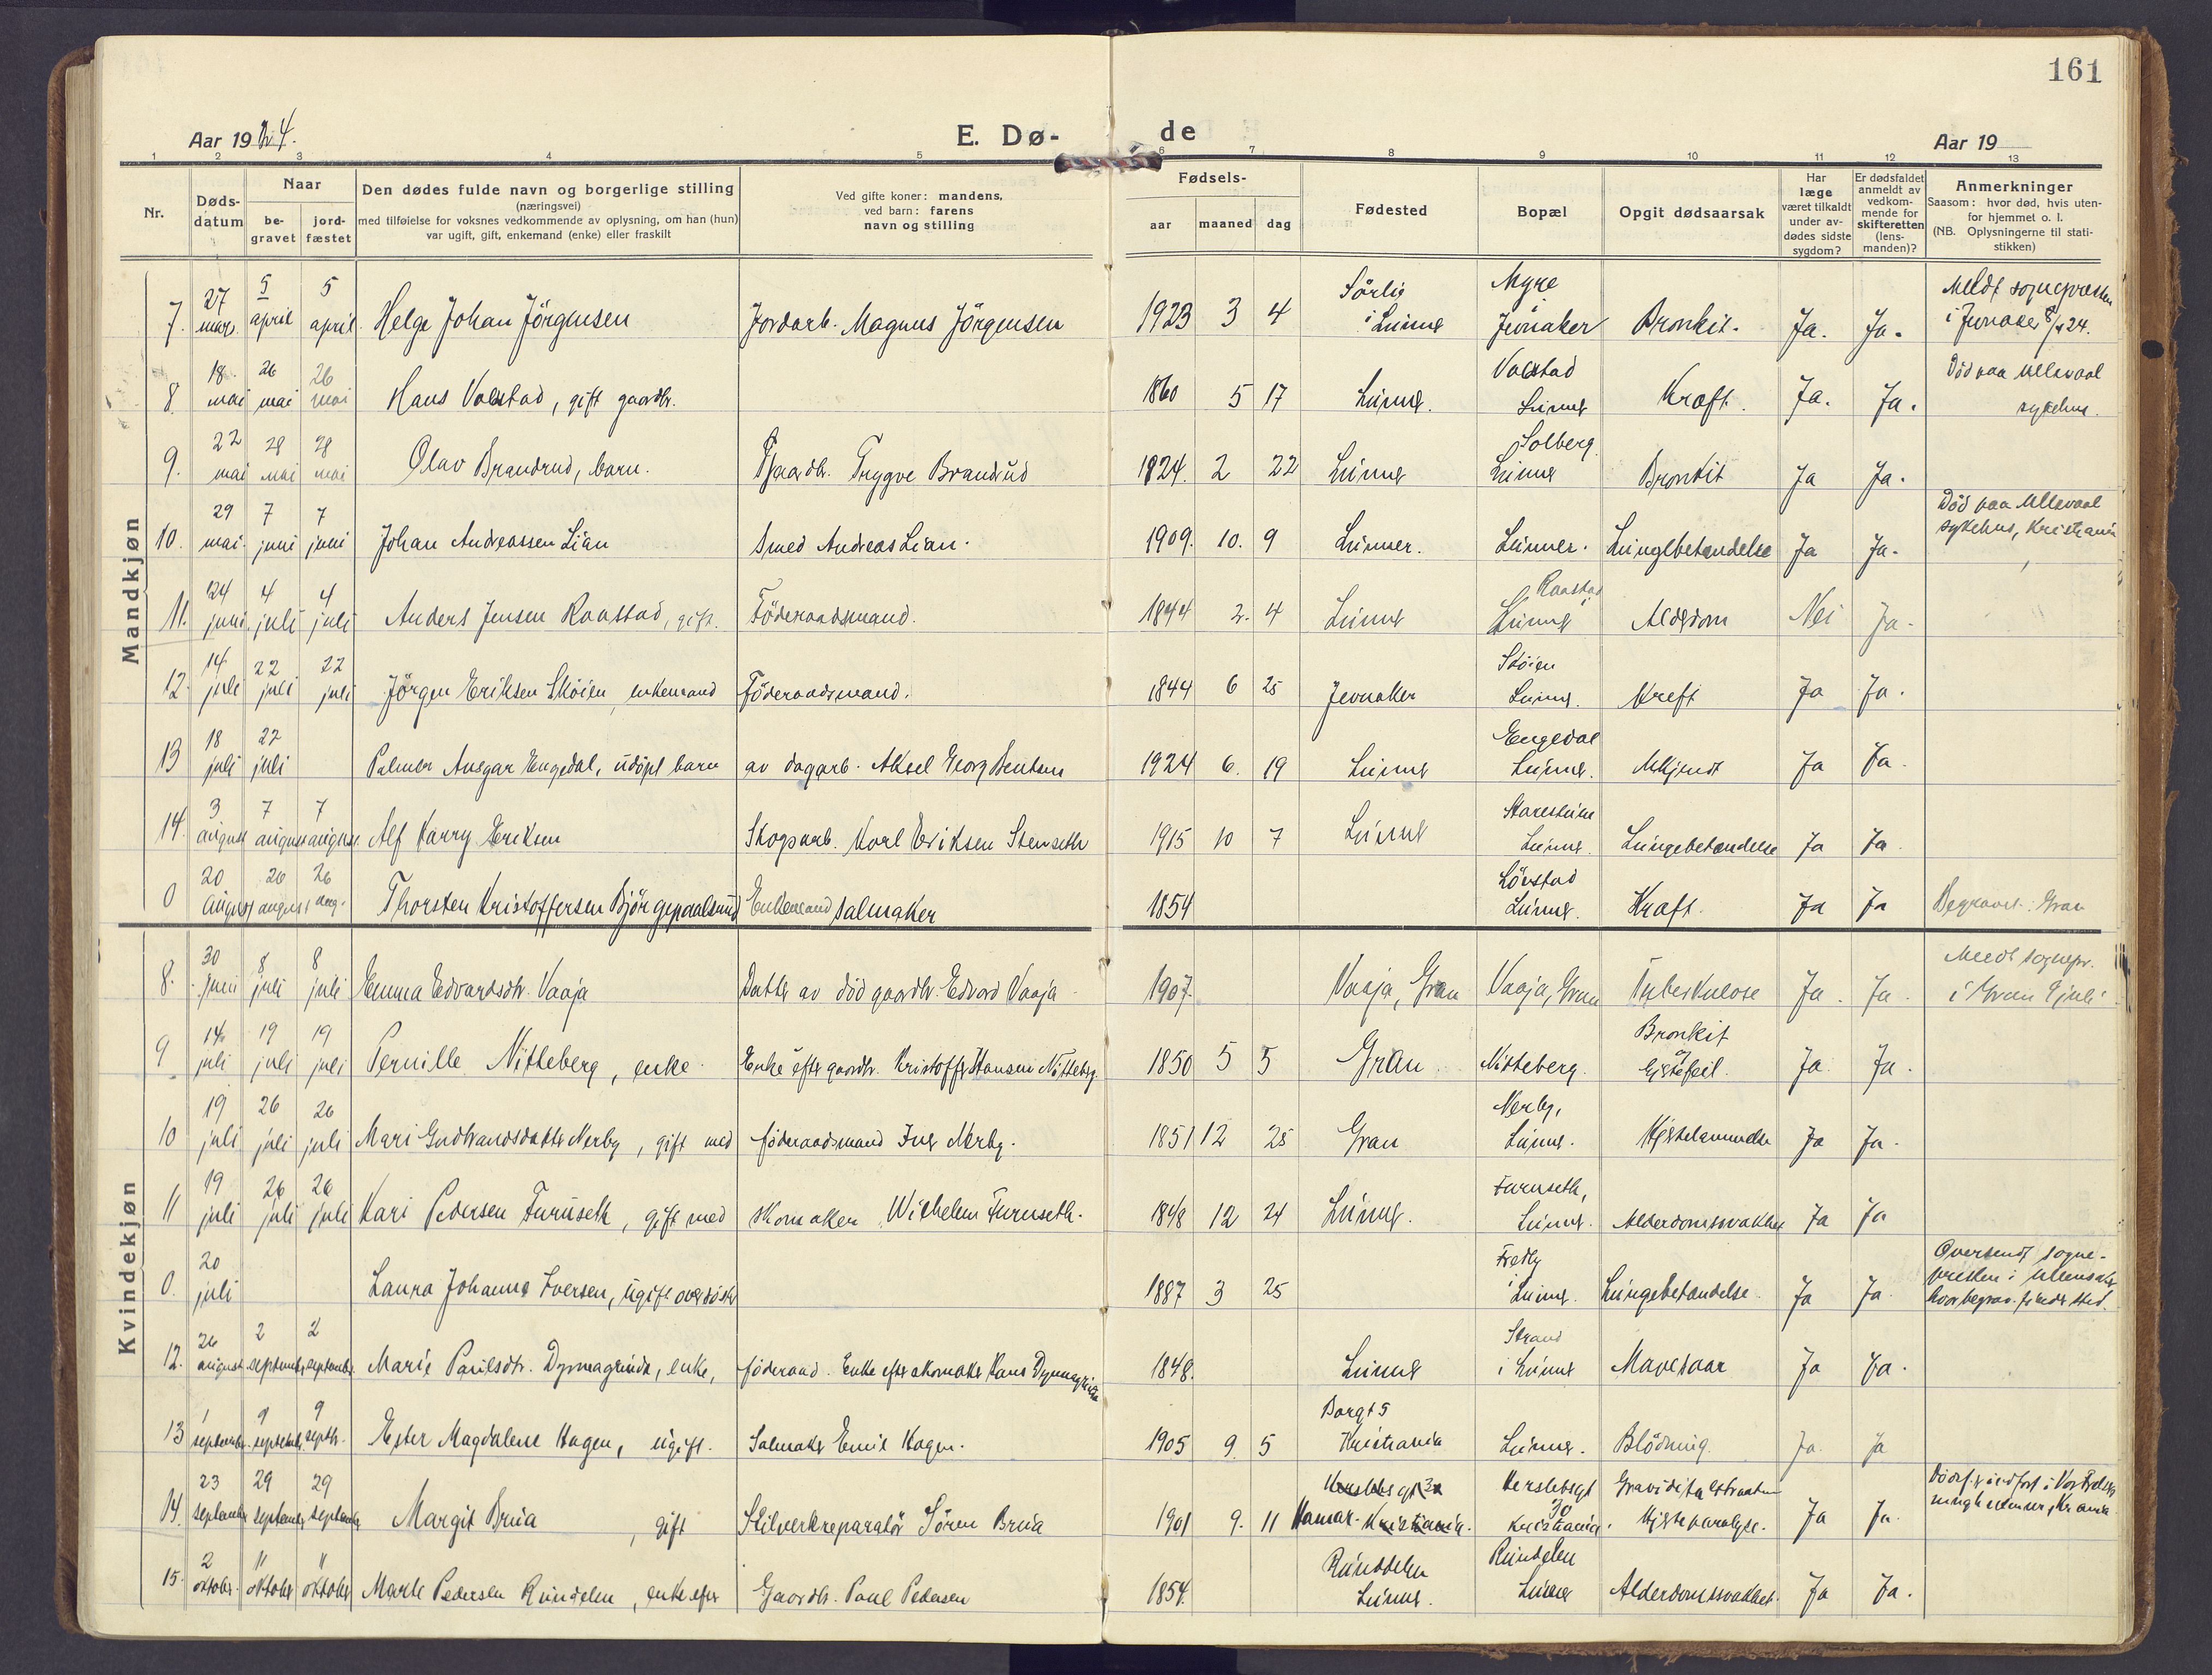 161
Aar 1924.
E. Dø-
de
Aar 19
1 2 3 4 5 6 7 8 9 10 11 12 13
Nr.
Døds-
datum
Naar
be-
gravet
jord-
fæstet
Den dødes fulde navn og borgerlige stilling
(næringsvei)
med tilføielse for voksnes vedkommende av oplysning, om han (hun)
var ugift, gift, enkemand (enke) eller fraskilt
Ved gifte koner: mandens,
ved barn: farens
navn og stilling
Fødsels-
aar
maaned
dag
Fødested
Bopæl
Opgit dødsaarsak
Har
læge
været tilkaldt
under av-
dødes sidste
sygdom?
Er dødsfaldet
anmeldt av
vedkom-
mende for
skifteretten
(lens-
manden)?
Anmerkninger
Saasom: hvor død, hvis uten-
for hjemmet o. l.
(NB. Oplysningerne til stati-
stikken)
Mandkjøn
7. 27 mars. 5 april 5 april. Helge Johan Jörgensen Jordarb. Magnus Jörgensen 1923 3 4 Sörlie i Lunner Myre i Jevnaker Bronkit. Ja. Ja. Meldt sognepresten i Jevnaker 8/4 24.
8. 18. mai 26 mai 26 mai Hans Volstad, gift gaardbr. 1860 5 17 Lunner. Volstad Lunner Kræft. Ja. Ja. Död paa Ullevaal sykehus.
9. 22 mai 28 mai 28 mai Olav Brandrud, barn. Gaardbr. Trygve Brandrud 1924. 2 22 Lunner Solberg Lunner Bronkit Ja Ja.
10. 29 mai. 7 juni 7 juni Johan Andreassen Lian Smed Andreas Lian. 1909. 10. 9 Lunner. Lunner. Lungebetændelse Ja Ja. Död paa Ullevaal sykehus, Kristiania
11. 24 juni. 4 juli 4 juli Anders Jensen Raastad, gift. Föderaadsmand. 1844 2. 4 Lunner Raastad i Lunner Alderdom Nei Ja.
12. 14 juli 22 juli 22 juli Jörgen Eriksen Sköien, enkemand Föderaadsmand. 1844 6 25 Jevnaker Sköien Lunner. Kreft Ja Ja.
13 18 juli 22 juli Palmer Ansgar Engedal, udöpt barn av dagarb. Aksel Georg Bentsen 1924 6. 19 Lunner Engedal Lunner. Ukjendt Ja Ja.
14. 3 august 7 august 7 august. Alf Harry Eriksen Skogsarb. Karl Eriksen Stenseth 1915 10 7 Lunner Lunner. Lungebetændelse Ja Ja.
0 20 august 26 august 26 aug. Thorsten Kristoffersen Björgepaalsrud Enkemand salmaker 1854 Lövstad Lunner. Kræft. Ja Ja Begravet i Gran
Kvindekjøn
8. 30 Juni 8 juli 8 juli Emma Edvardsdtr. Vaaja Datter av död gaardbr. Edvard Vaaja 1907. Vaaja, Gran Vaaja, Gran Tuberkulose Ja. Ja. Meldt sognepr. i Gran 9 juli
9 14 juli 19 juli 19 juli Pernille Nitteberg, enke. Enke efter gaardbr. Kristoffer Hansen Nitteberg. 1850 5 5 Gran. Nitteberg. Bronkit og Hjertefeil. Ja Ja.
10 19 juli 26 juli 26 juli Mari Gudbrandsdatter Nerby, gift med föderaadsmand Iver Nerby. 1851 12 25 Gran Nerby, Lunner. Hjertelammelse Ja Ja.
11 19 juli 26 juli 26 juli Kari Pedersen Furuseth, gift med skomaker Wilhelm Furuseth. 1848 12 24 Lunner. Furuseth, Lunner. Alderdomssvakhet Ja Ja
0. 20 juli Laura Johanne Iversen, ugift oversöster 1887 3 25 Fredly i Lunner. Lungebetændelse. Ja Ja. Oversendt sogne-presten i Ullensaker hvor begrav. finder sted.
12. 26 august 2 september 2 september Marie Paulsdtr. Dynnagrinda, enke, föderaad. Enke efter skomaker Hans Dynnagrinda 1848. Lunner Strand i Lunner Mavesaar Ja Ja.
13 1 september. 9 september 9 septbr. Ester Magdalene Hagen, ugift. Salmaker Emil Hagen. 1905 9. 5 Borgt 5 Kristiania Lunner. Blödning. Ja. Ja
14. 23 september 29 september 29 september Margit Brua, gift Skilverkreparatör Sören Brua 1901 9. 11 Herslebs gt 30 Hamar. Kristiania. Herslebsgt 30 Kristiania. Hjerteparalyse. Ja Ja.
15. 2 oktober. 11 oktober 11 oktober Marte Pedersen Rundelen, enke efter Gaardbr. Paul Pedersen 1854. Rundelen Lunner. Rundelen Lunner Alderdomssvakhet. Ja Ja.